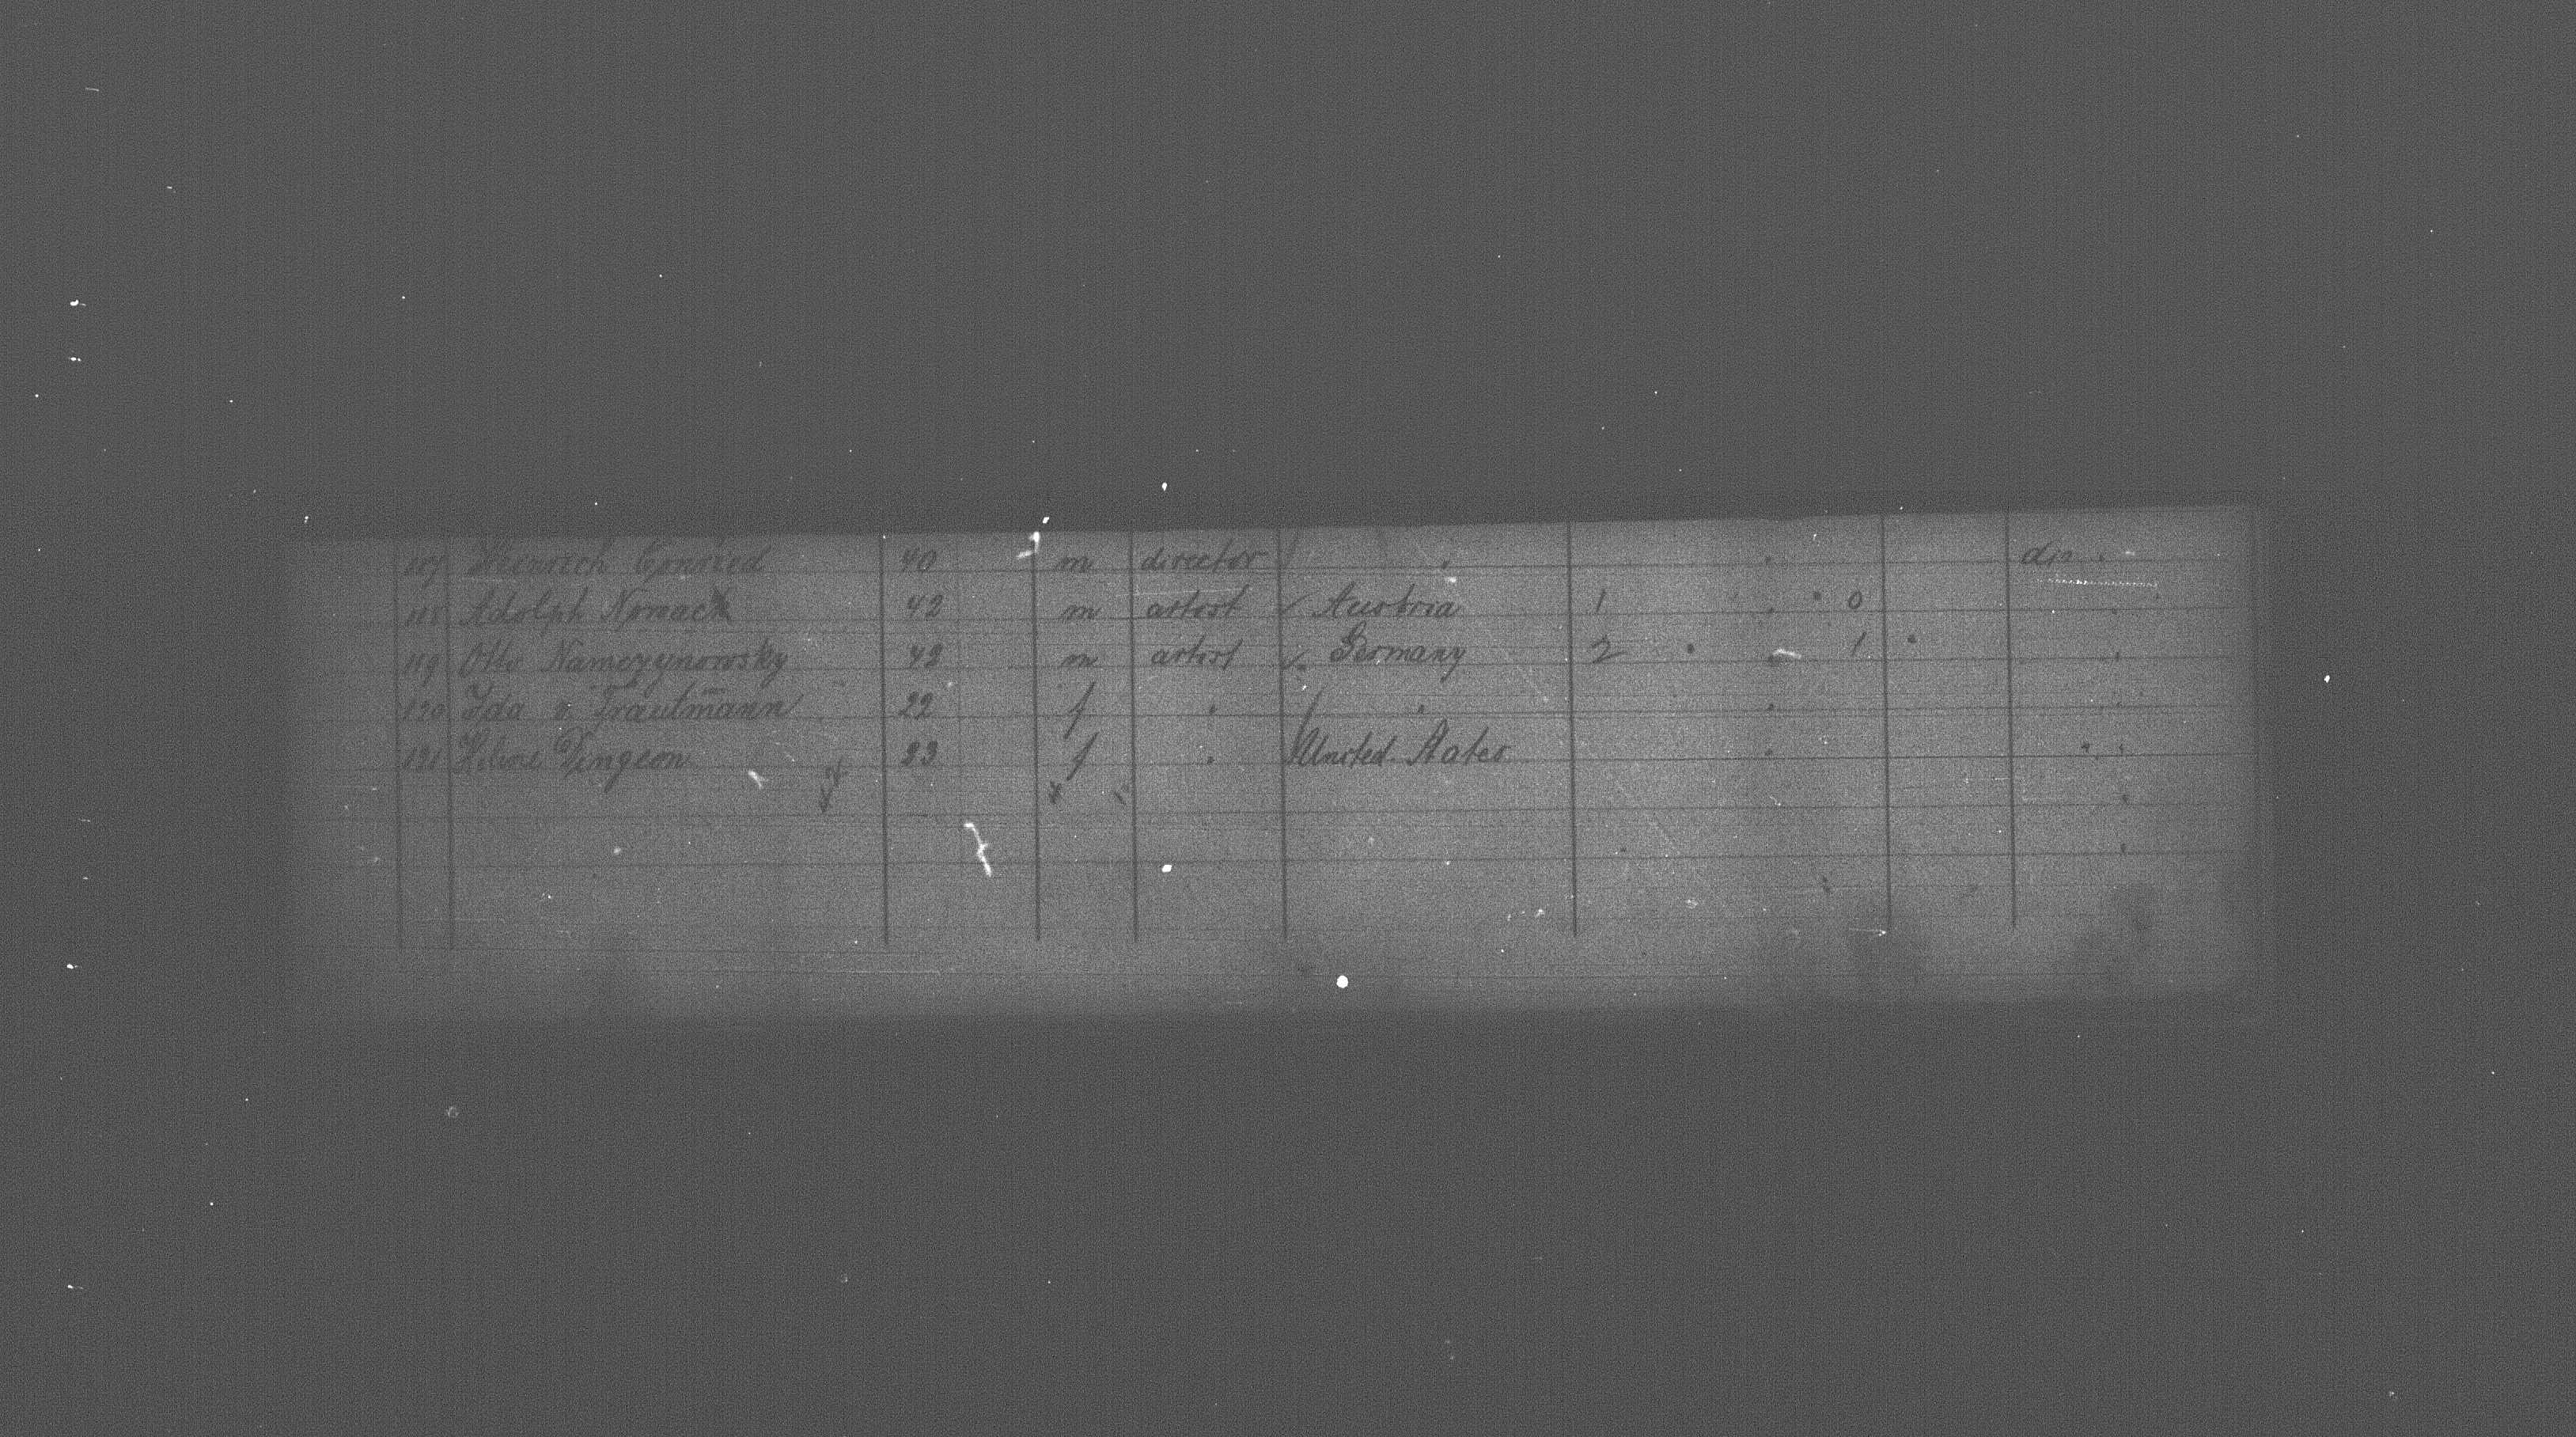 117 Heinrich Conried 40 m director " " do "
118 Adolph Nowack 42 m artist Austria 1 " " 0 "
119 Otto Namczynowsky 42 m artist Germany 2 " " 1 " "
120 Ida v. Trautmann 22 f " " " "
121 Dingeon 23 f " United States " " "